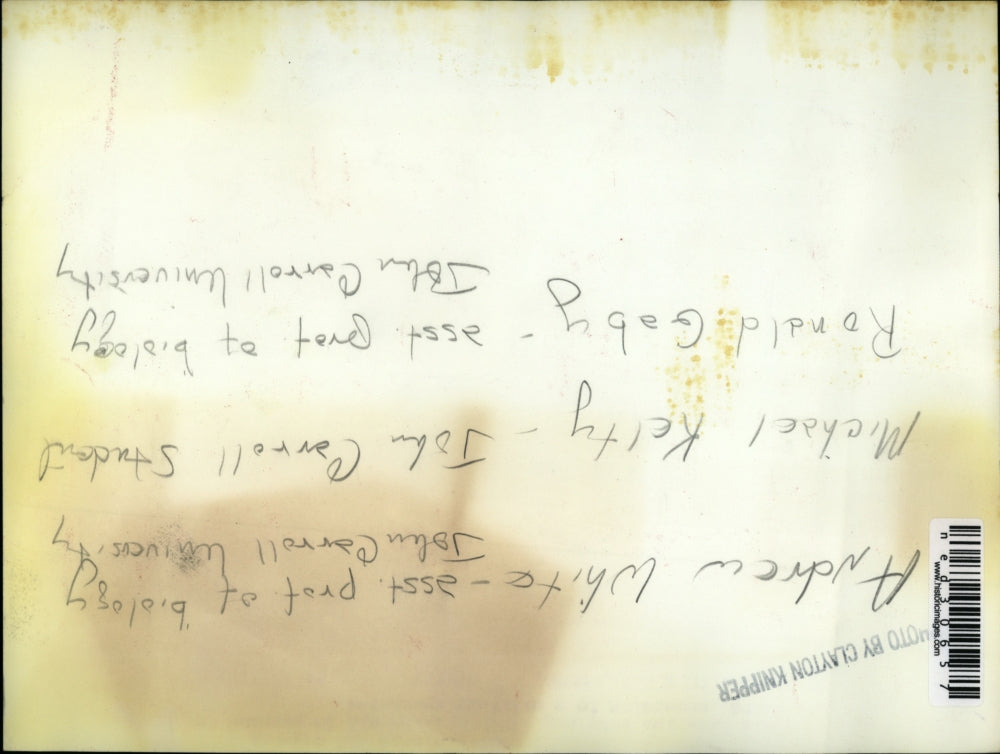 PHOTO BY CLAYTON KNIPPER
Andrew White - asst. prof of biology
John Carroll University
Michael Kelty - John Carroll Student
Ronald Gaby - asst prof of biology
John Carroll University
ned30657
www.historicimages.com